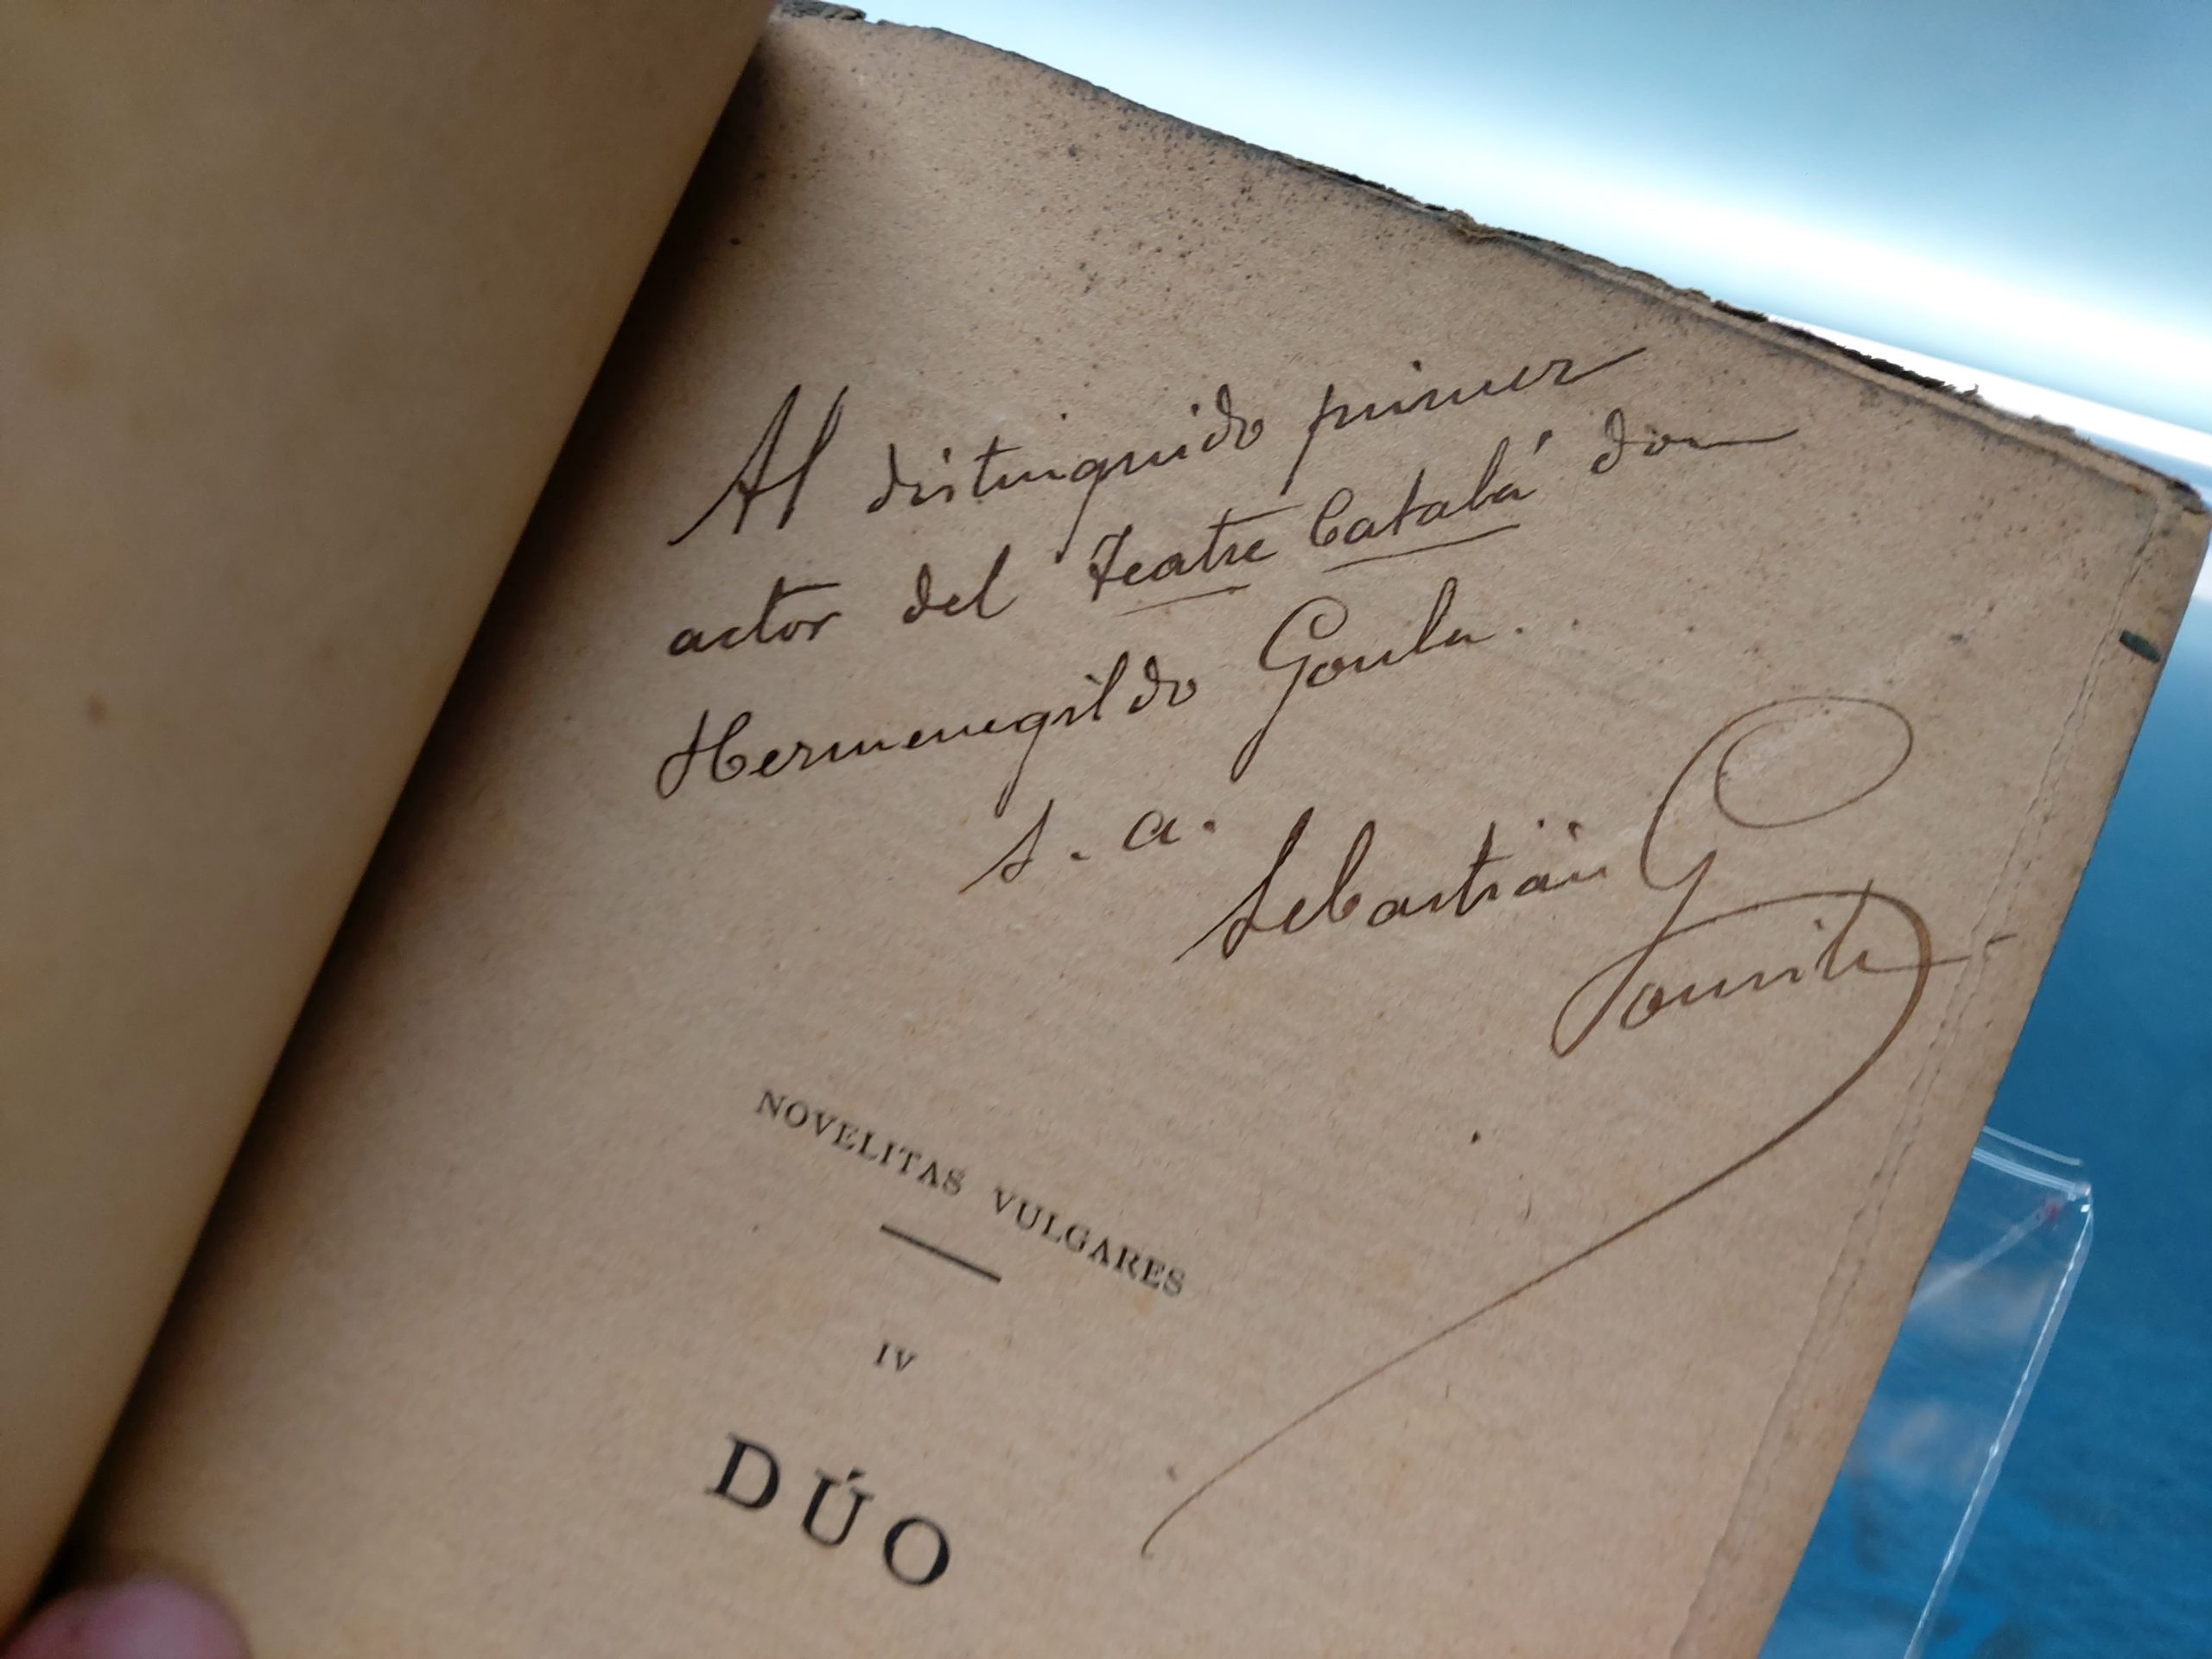 Al distinguido primer
actor del Teatre Catalá don
Hermenegildo Goula.
s. a.
Sebastián G
NOVELITAS VULGARES
IV
DÚO